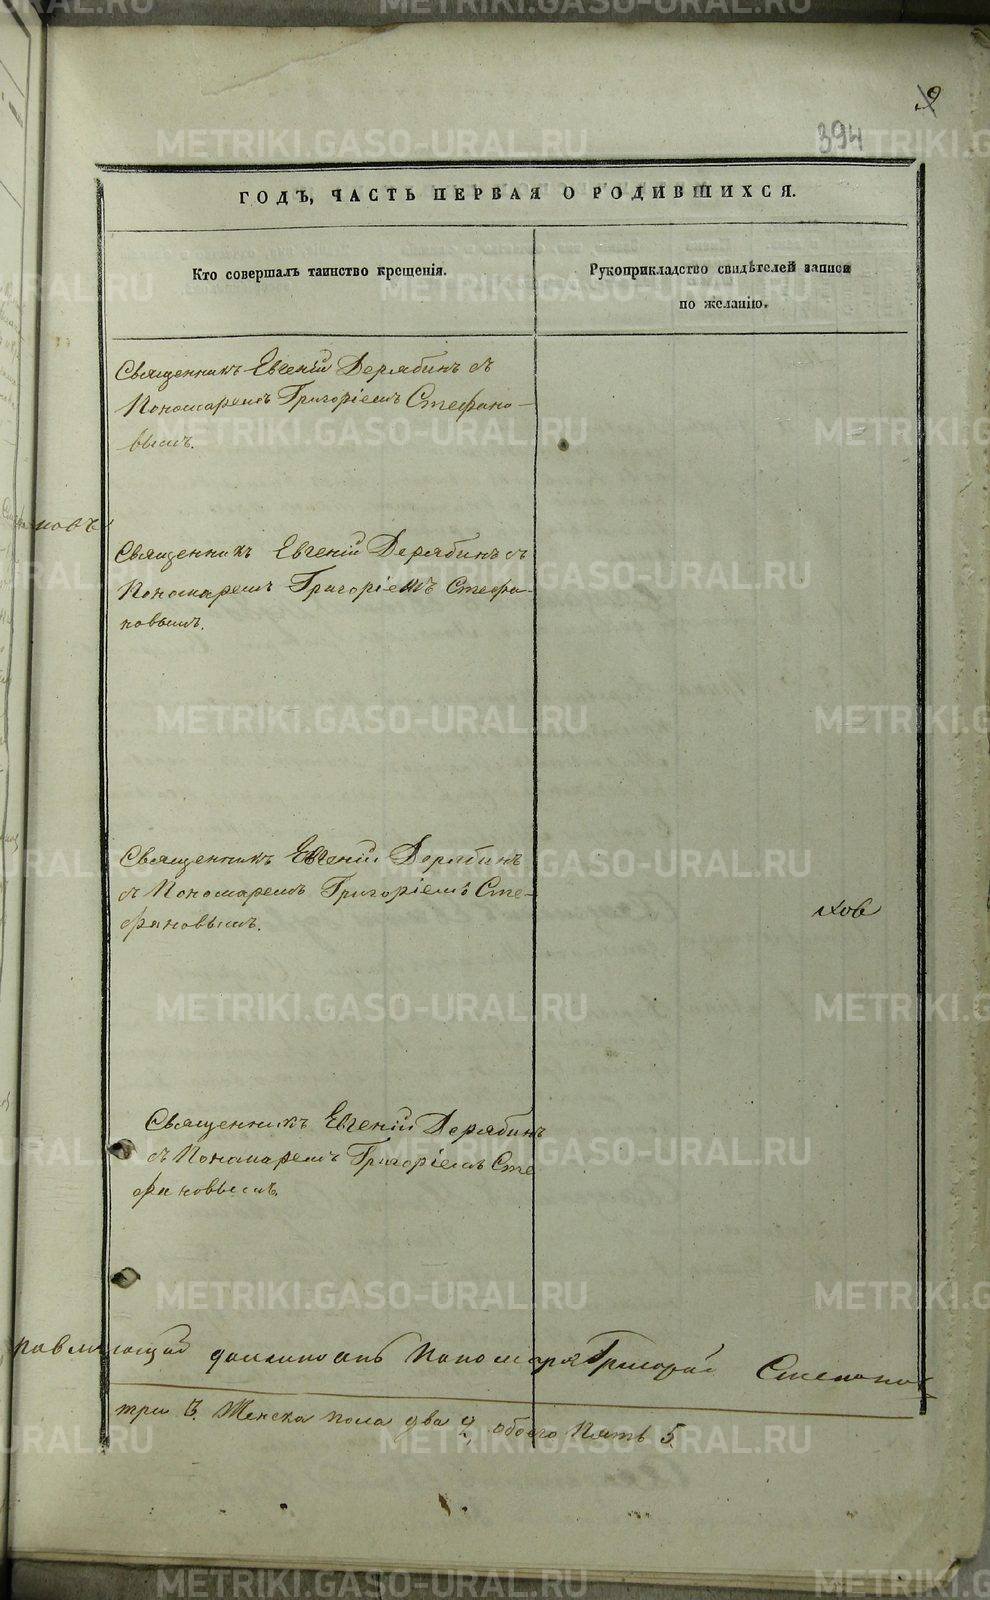 9
394
ГОДЪ, ЧАСТЬ ПЕРВАЯ О РОДИВШИХСЯ.
Кто совершалъ таинство крещенія.
Рукоприкладство свидѣтелей записи
по желанію.
Священникъ Евгеній Дерябинъ съ
Пономаремъ Григоріемъ Стефано-
вымъ.
новъ
Священникъ Евгеній Дерябинъ съ
Пономаремъ Григоріемъ Стефа-
новымъ.
Священникъ Евгеній Дерябинъ
съ Пономаремъ Григоріемъ Сте-
фановымъ.
ховъ
Священникъ Евгеній Дерябинъ
съ Пономаремъ Григоріемъ Сте
фановымъ.
равляющій должность Пономаря Григорій Степано
три 3. Женска пола два 2, обоего Пять 5
METRIKI.GASO-URAL.RU